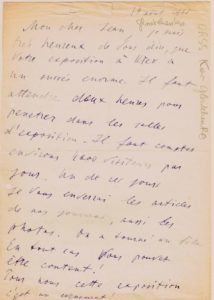 Mon cher Jean je suis
très heureux de vous dire que
votre exposition à Kiev a
un succès énorme. Il faut
attendre deux heures pour
penetrer dans les salles
d'exposition. Il faut compter
environs 1000 visiteurs par
jour. Un de ces jours
Je vous enverrai les articles
de nos journaux, aussi les
photos. On a tourné un film
En tout cas vous pouvez
être content!
Tous nous cette exposition
c'est un evenement!
URSS, Kiev